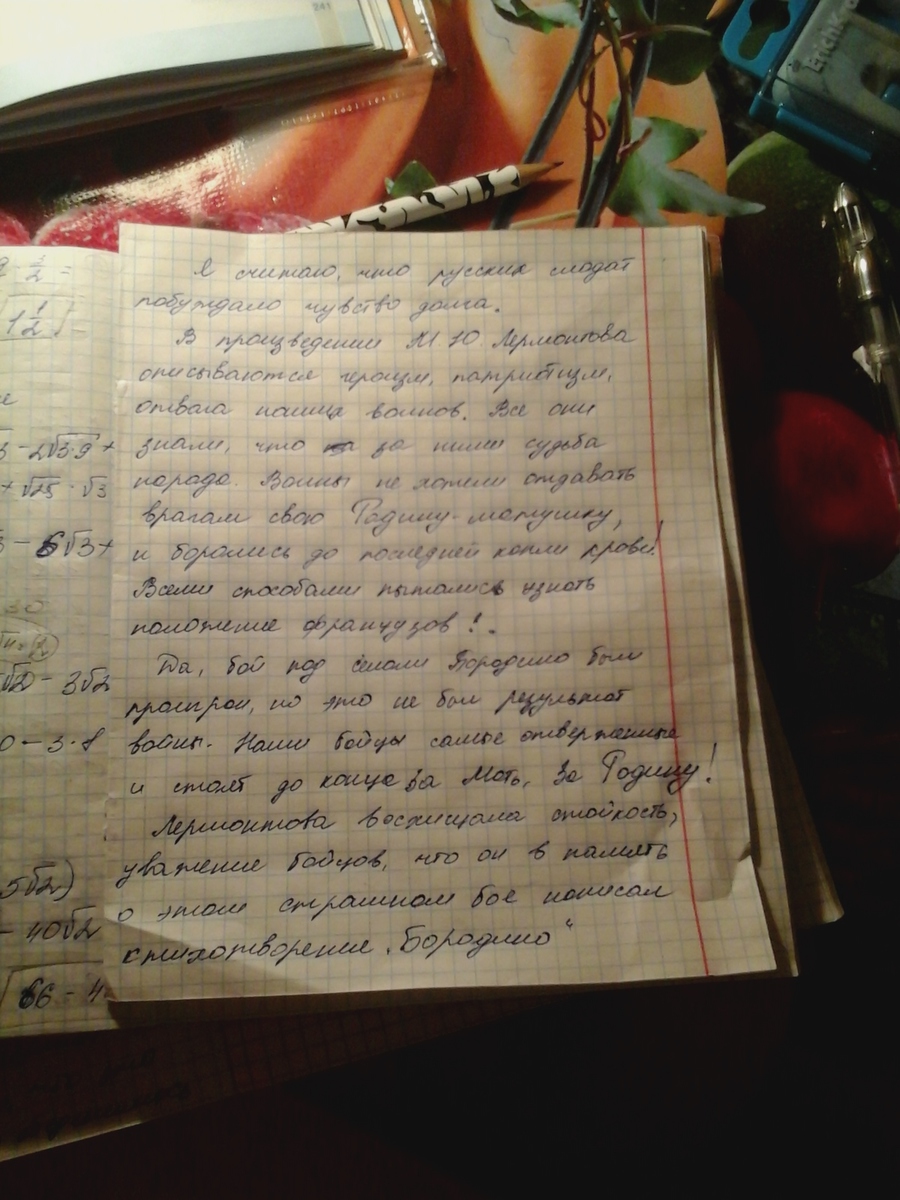 241
ErichK
Я считаю, что русских слодат
побуждало чувство долга.
В произведении М.Ю. Лермонтова
описываются героизм, патриотизм,
отвага наших воинов. Все они
знали, что за ними судьба
народа. Воины не хотели отдавать
врагам свою Родину-матушку,
и боролись до последней капли крови!
Всеми способами пытались узнать
положение французов!.
Да, бой под селом Бородино был
проигран, но это не был результат
войны. Наши бойцы самые отверженные
и стоят до конца за Мать, За Родину!
Лермонтова восхищала стойкость,
уважение бойцов, что он в память
о этом страшном бое написал
стихотворение „Бородино“
1 1/2
3 - 2√3·9 +
+ √25 · √3
- 6√3 +
√20 - 3√2
0 - 3·8
5√2)
- 40√2
66 - 4